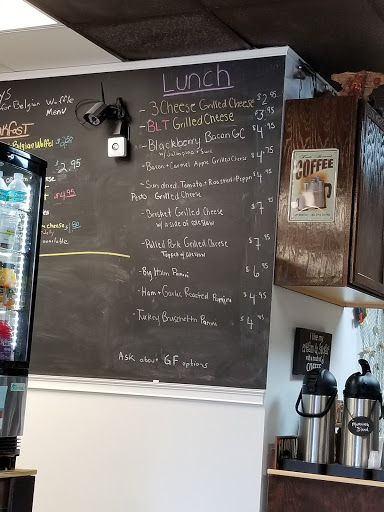 for Belgian Waffle
Menu
Belgian Waffles
$2.95
$4.95
Lunch
- 3 Cheese Grilled Cheese $2.95
- BLT Grilled Cheese $3.95
- Blackberry Bacon GC $4.95
- Bacon + Caramel Apple Grilled Cheese $4.75
- Sun dried Tomato + Roasted Peppers $4
Pesto Grilled Cheese
- Brisket Grilled Cheese $7.95
w/ a side of coleslaw
- Pulled Pork Grilled Cheese $7.95
Topped w/ coleslaw
- Big Italian Panini $6.95
- Ham + Garlic Roasted Panini $4.95
- Turkey Bruschetta Panini $4.95
Ask about GF options
COFFEE
I like my
COFFEE
Morning
Blend